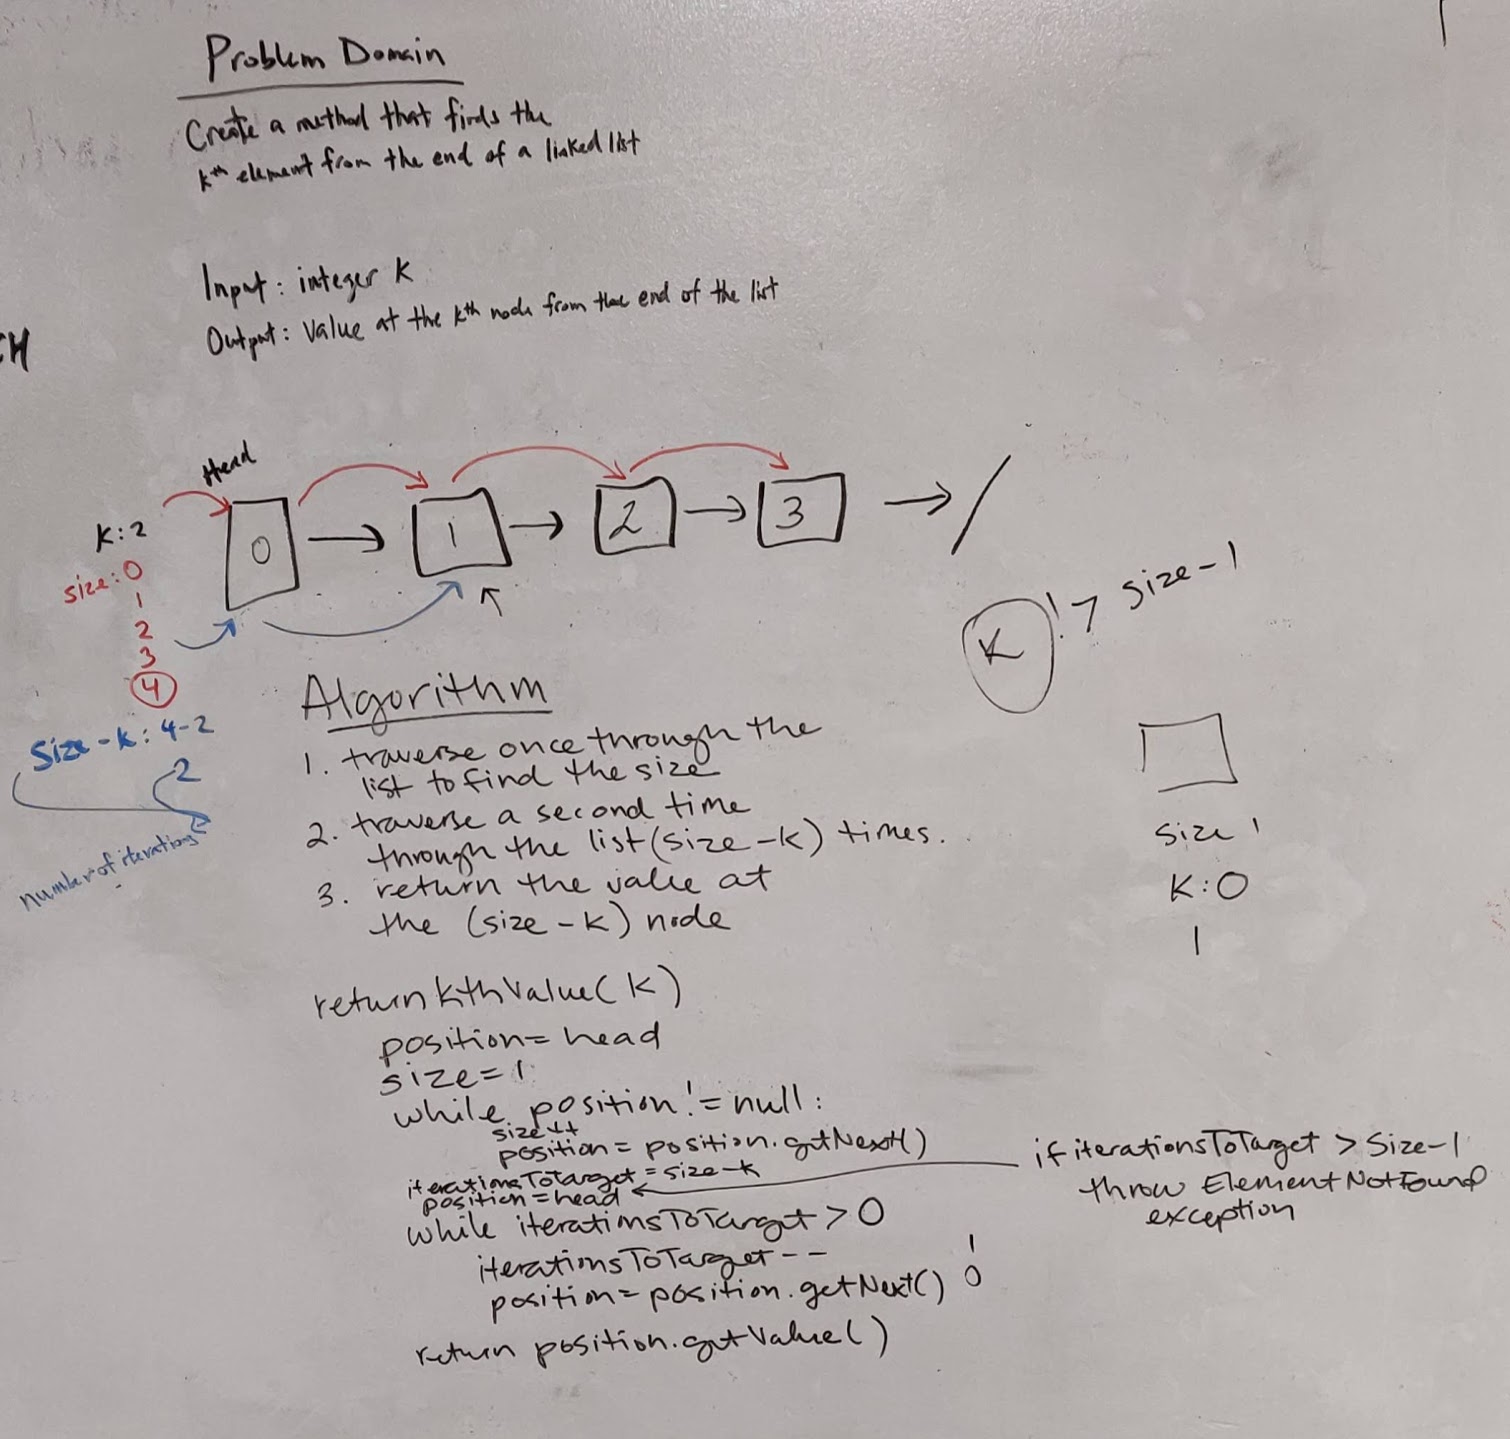 Problem Domain
Create a method that finds the
kth element from the end of a linked list
Input: integer k
Output: Value at the kth node from the end of the list
CH
Head
0
1
2
3
k:2
size:0
1
2
3
4
Size-k: 4-2
2
number of iterations
K !> size-1
size 1
K:0
1
Algorithm
1. traverse once through the
list to find the size
2. traverse a second time
through the list (size-k) times.
3. return the value at
the (size-k) node
return kthValue(k)
position = head
size = 1
while position != null:
size++
position = position.getNext()
iterationsToTarget = size-k
position = head
while iterationsToTarget > 0
iterationsToTarget--
position = position.getNext()
return position.getValue()
if iterationsToTarget > Size-1
throw ElementNotFound
exception
1
0